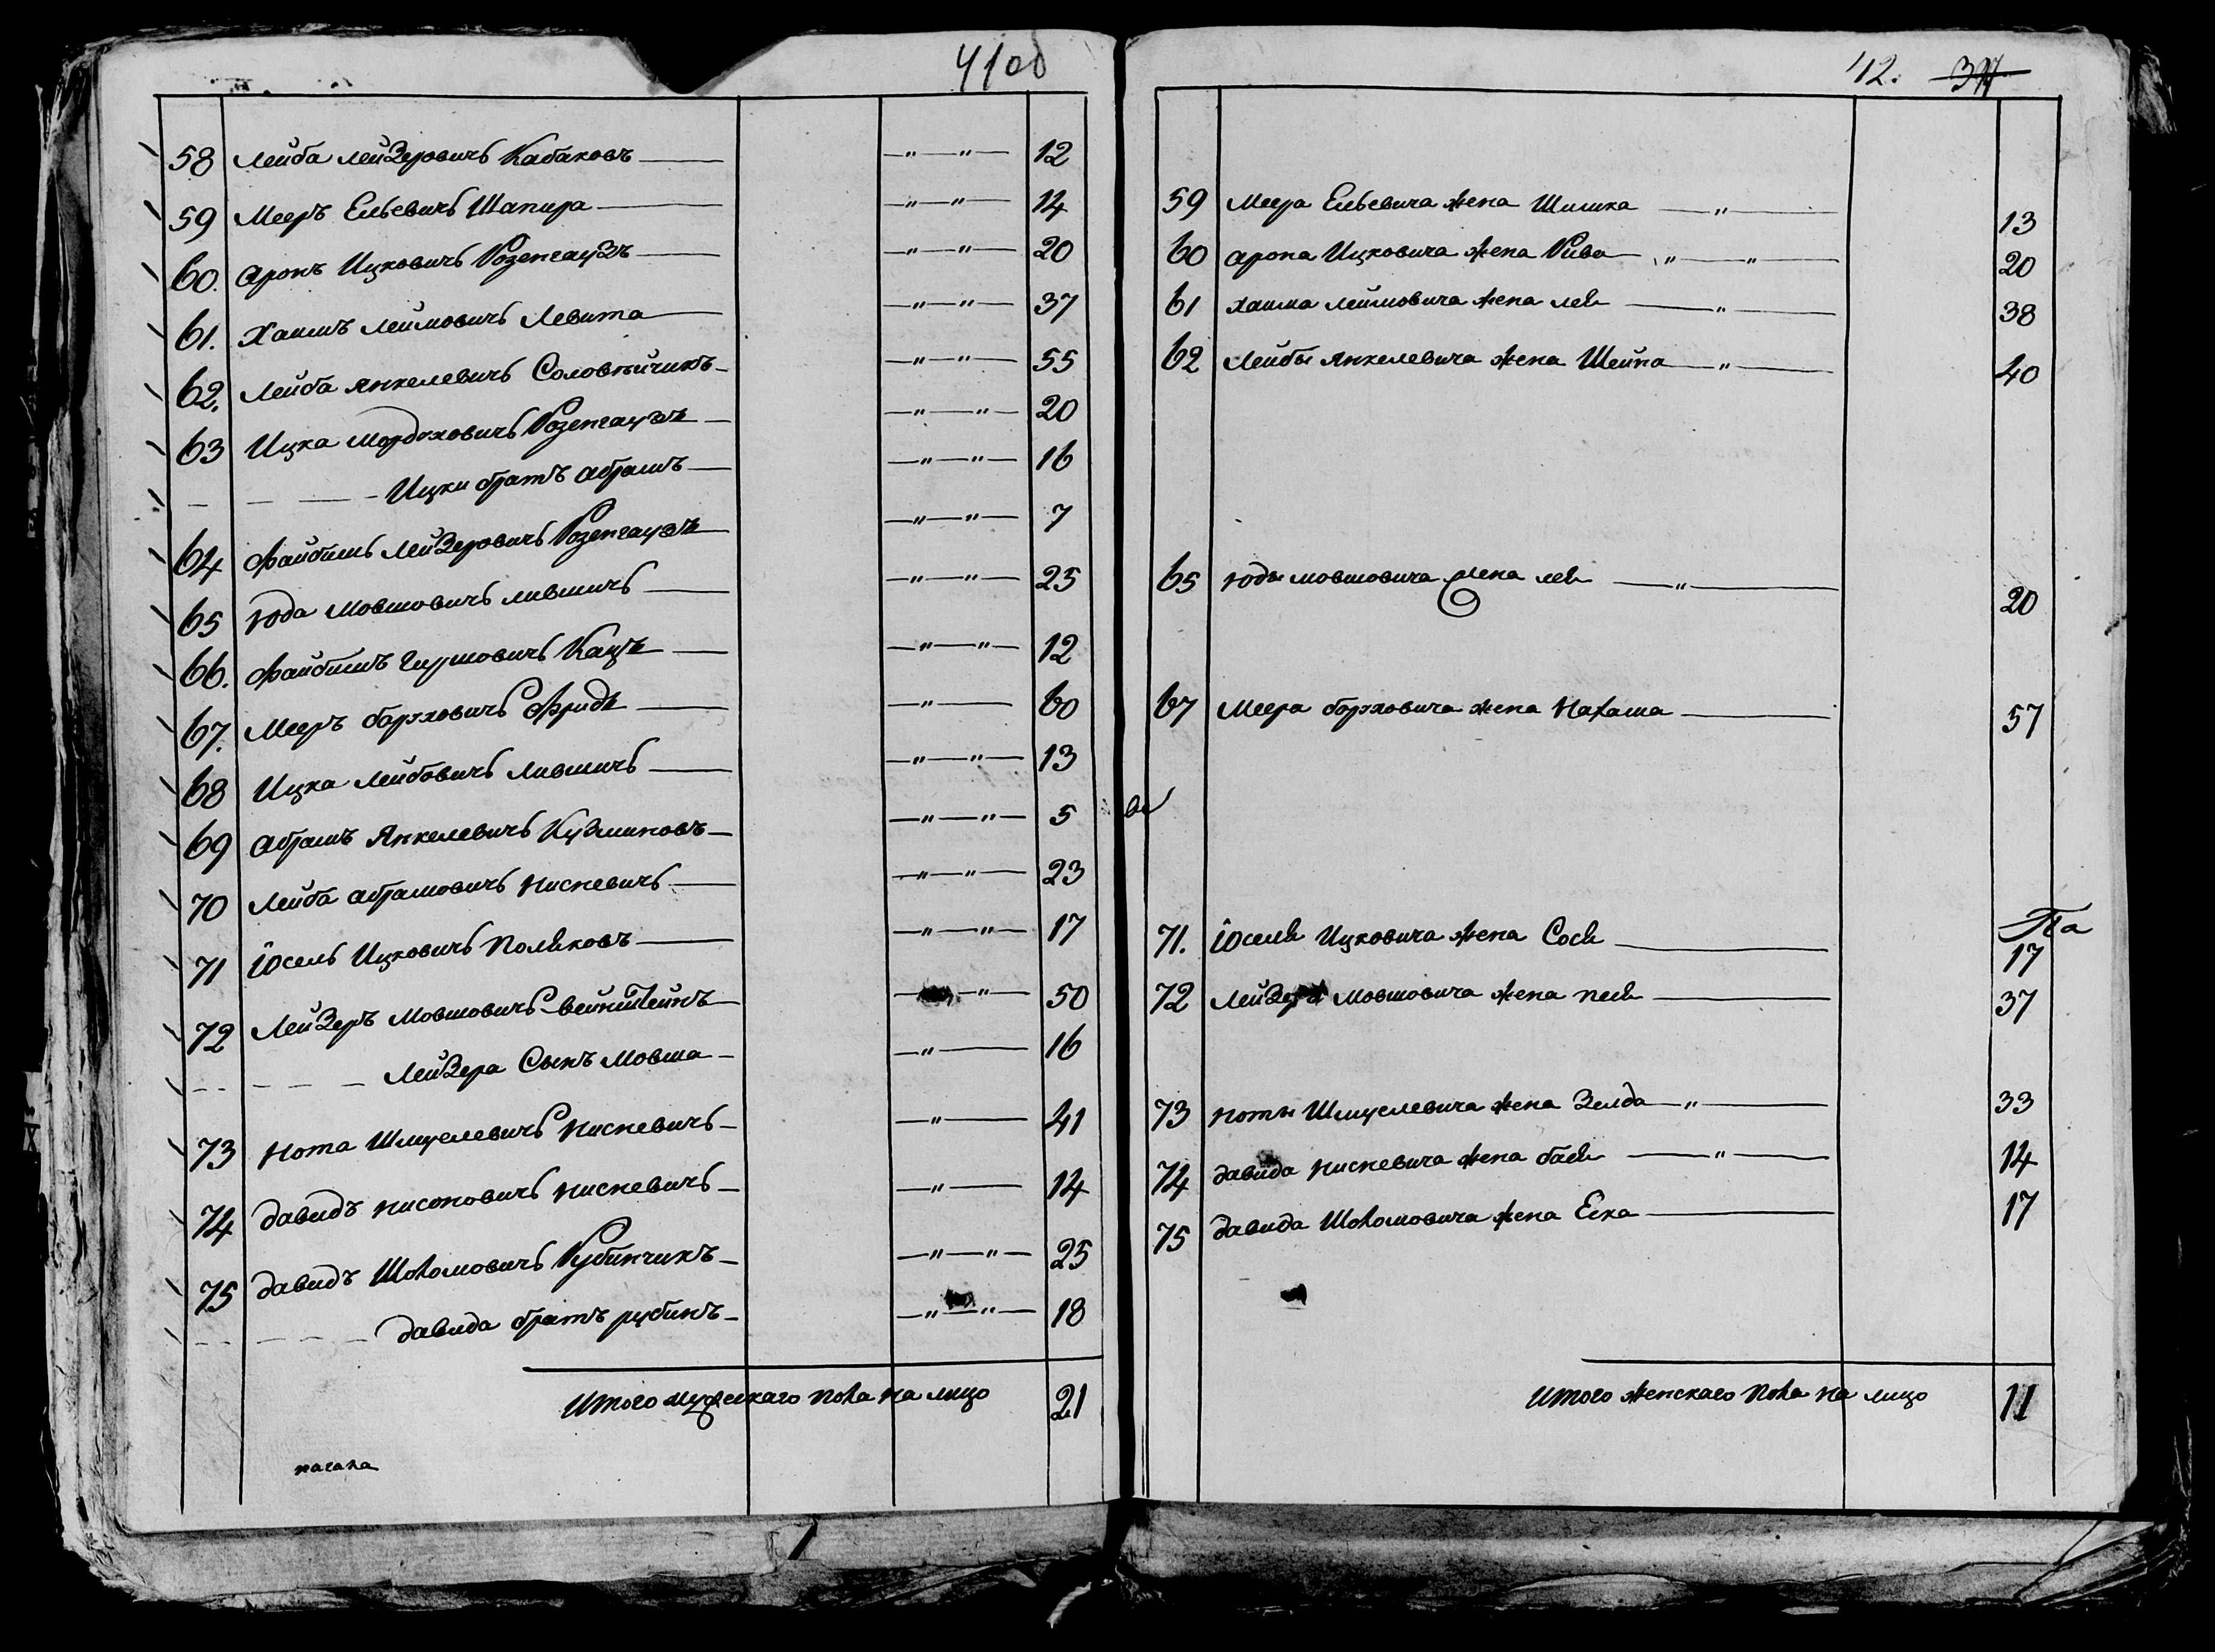 41об
58 Лейба Лейзеровичъ Кабаковъ — " — " — 12
59 Мееръ Ельевичъ Шапира — " — " — 14
60. Аронъ Ицковичъ Розенгаузъ — " — " — 20
61. Хаимъ Леймовичъ Левита — " — " — 37
62. Лейба Янкелевичъ Соловейчикъ — " — " — 55
63 Ицка Мордховичъ Розенгаузъ — " — " — 20
— — — Ицки братъ Абрамъ — " — " — 16
64 Файбишь Лейзеровичъ Розенгаузъ — " — " — 7
65 Юда Мовшовичъ Лившичъ — " — " — 25
66. Файбишъ Гиршовичъ Кацъ — " — " — 12
67. Мееръ Борховичъ Фридъ — " — 60
68 Ицка Лейбовичъ Лившичъ — " — " — 13
69 Абрамъ Янкелевичъ Кузминовъ — " — " — 5
70 Лейба Абрамовичъ Нисневичъ — " — " — 23
71 Іосель Ицковичъ Поляковъ — " — " — 17
72 Лейзеръ Мовшовичъ Вейнштейнъ — " — 50
— — — Лейзера Сынъ Мовша — " — 16
73 Нота Шмуелевичъ Нисневичъ — " — 41
74 Давидъ Нисоновичъ Нисневичъ — " — 14
75 Давидъ Шоломовичъ Рубинчикъ — " — " — 25
— — — Давида братъ рубинъ — " — " — 18
Итого мужескаго пола на лицо 21
начала
42.
59 Меера Ельевича жена Шишка — " — 13
60 Арона Ицковича жена Рива — " — " — 20
61 Хаима Леймовича жена лея — " — 38
62 Лейбы Янкелевича жена Шейна — " — 40
65 Юды мовшовича жена лея — " — 20
67 Меера борховича жена Нахама — 57
71. Іоселя Ицковича жена Сося — 17
72 Лейзера Мовшовича жена песя — 37
73 Ноты Шмуелевича жена Зелда — " — 33
74 Давида Нисневича жена бася — " — 14
75 Давида Шоломовича жена Еска — 17
Итого женскаго пола на лицо 11